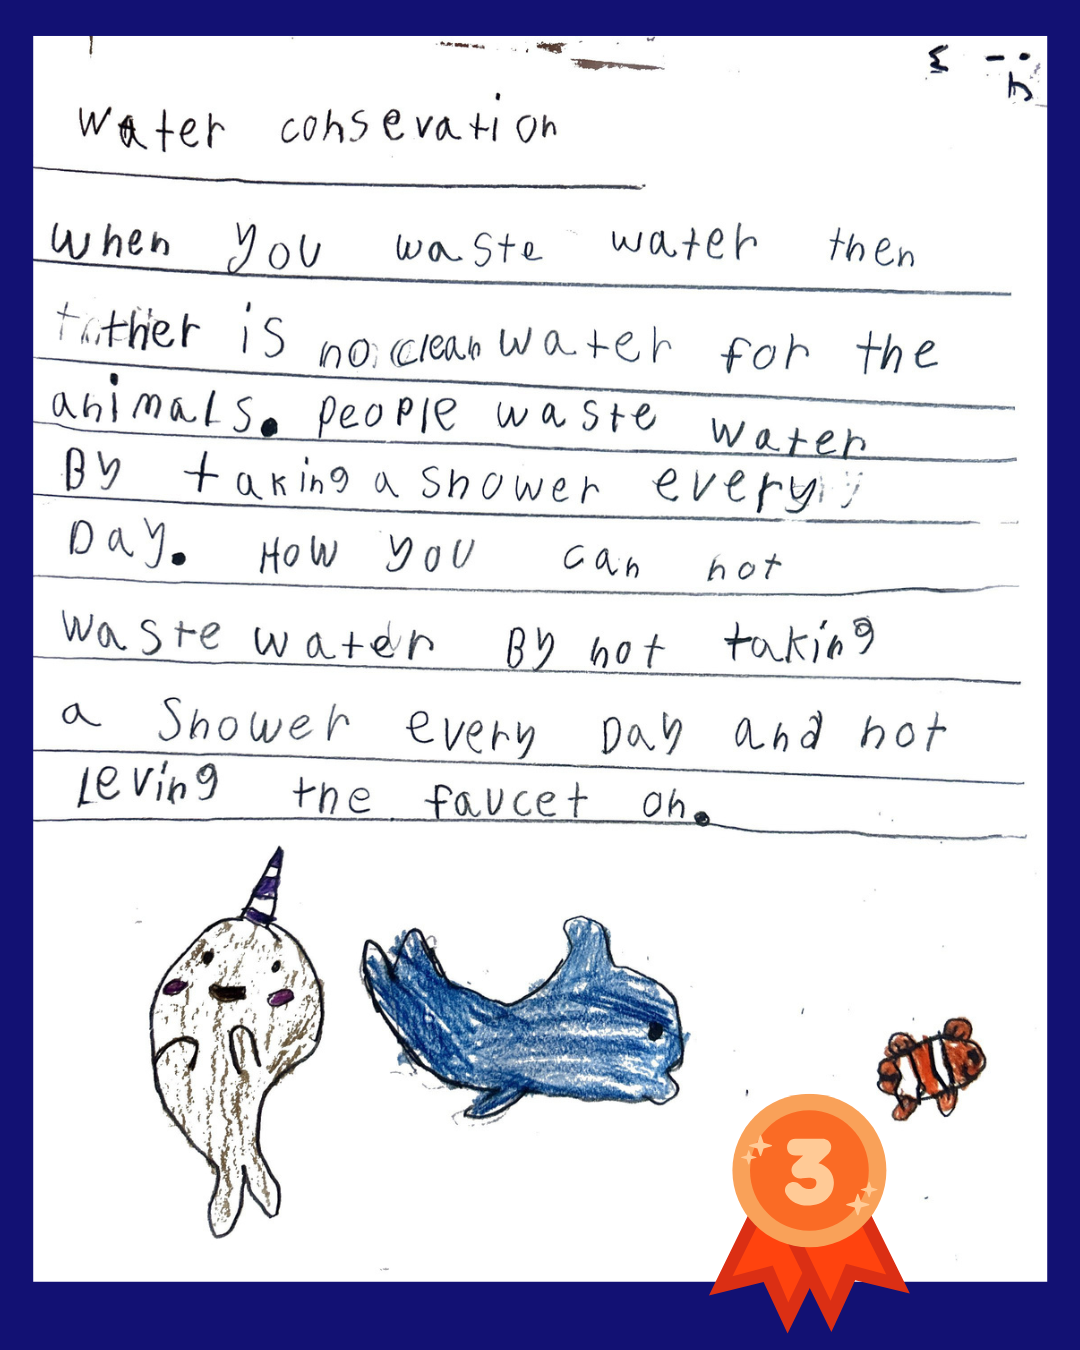 Water consevation
when you waste water then
ther is no clean water for the
animals. people waste water
By taking a shower every
Day. How you can not
waste water By not taking
a Shower every Day and not
Leving the faucet on.
3